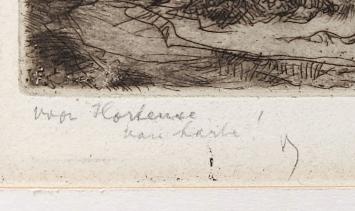 voor Hortense
van harte !